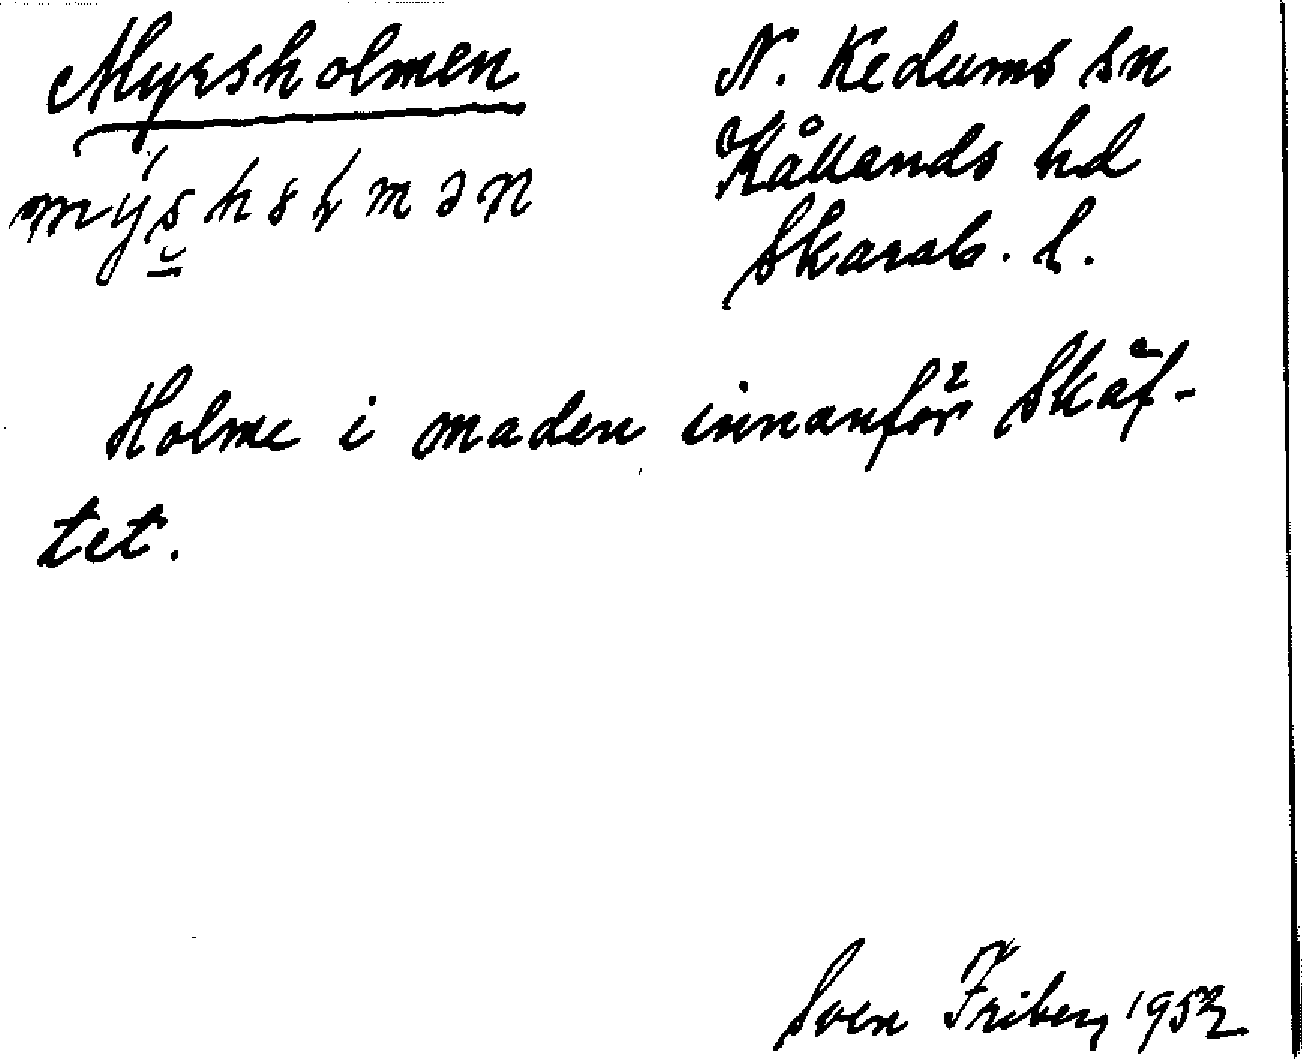 Myrsholmen
N. Kedums sn
Kållands hd
Skarab. l.
Holme i maden innanför Skäf-
tet.
Sven Friberg 1952